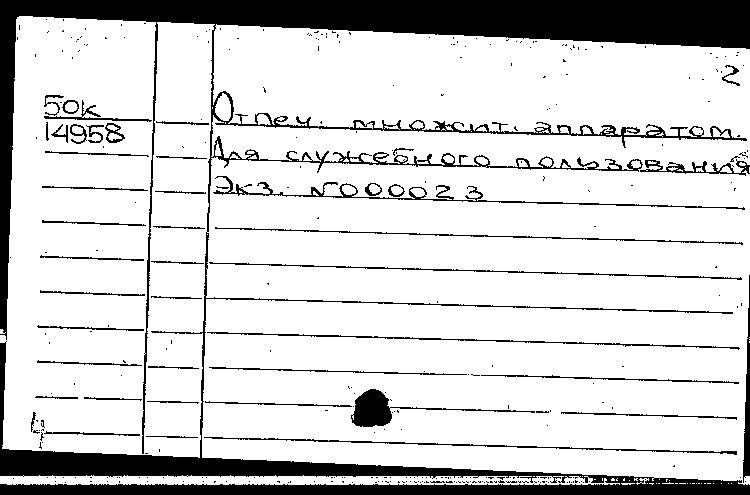 2
50к
14958
Отпеч. множит. аппаратом.
Для служебного пользования
Экз. N000023
4